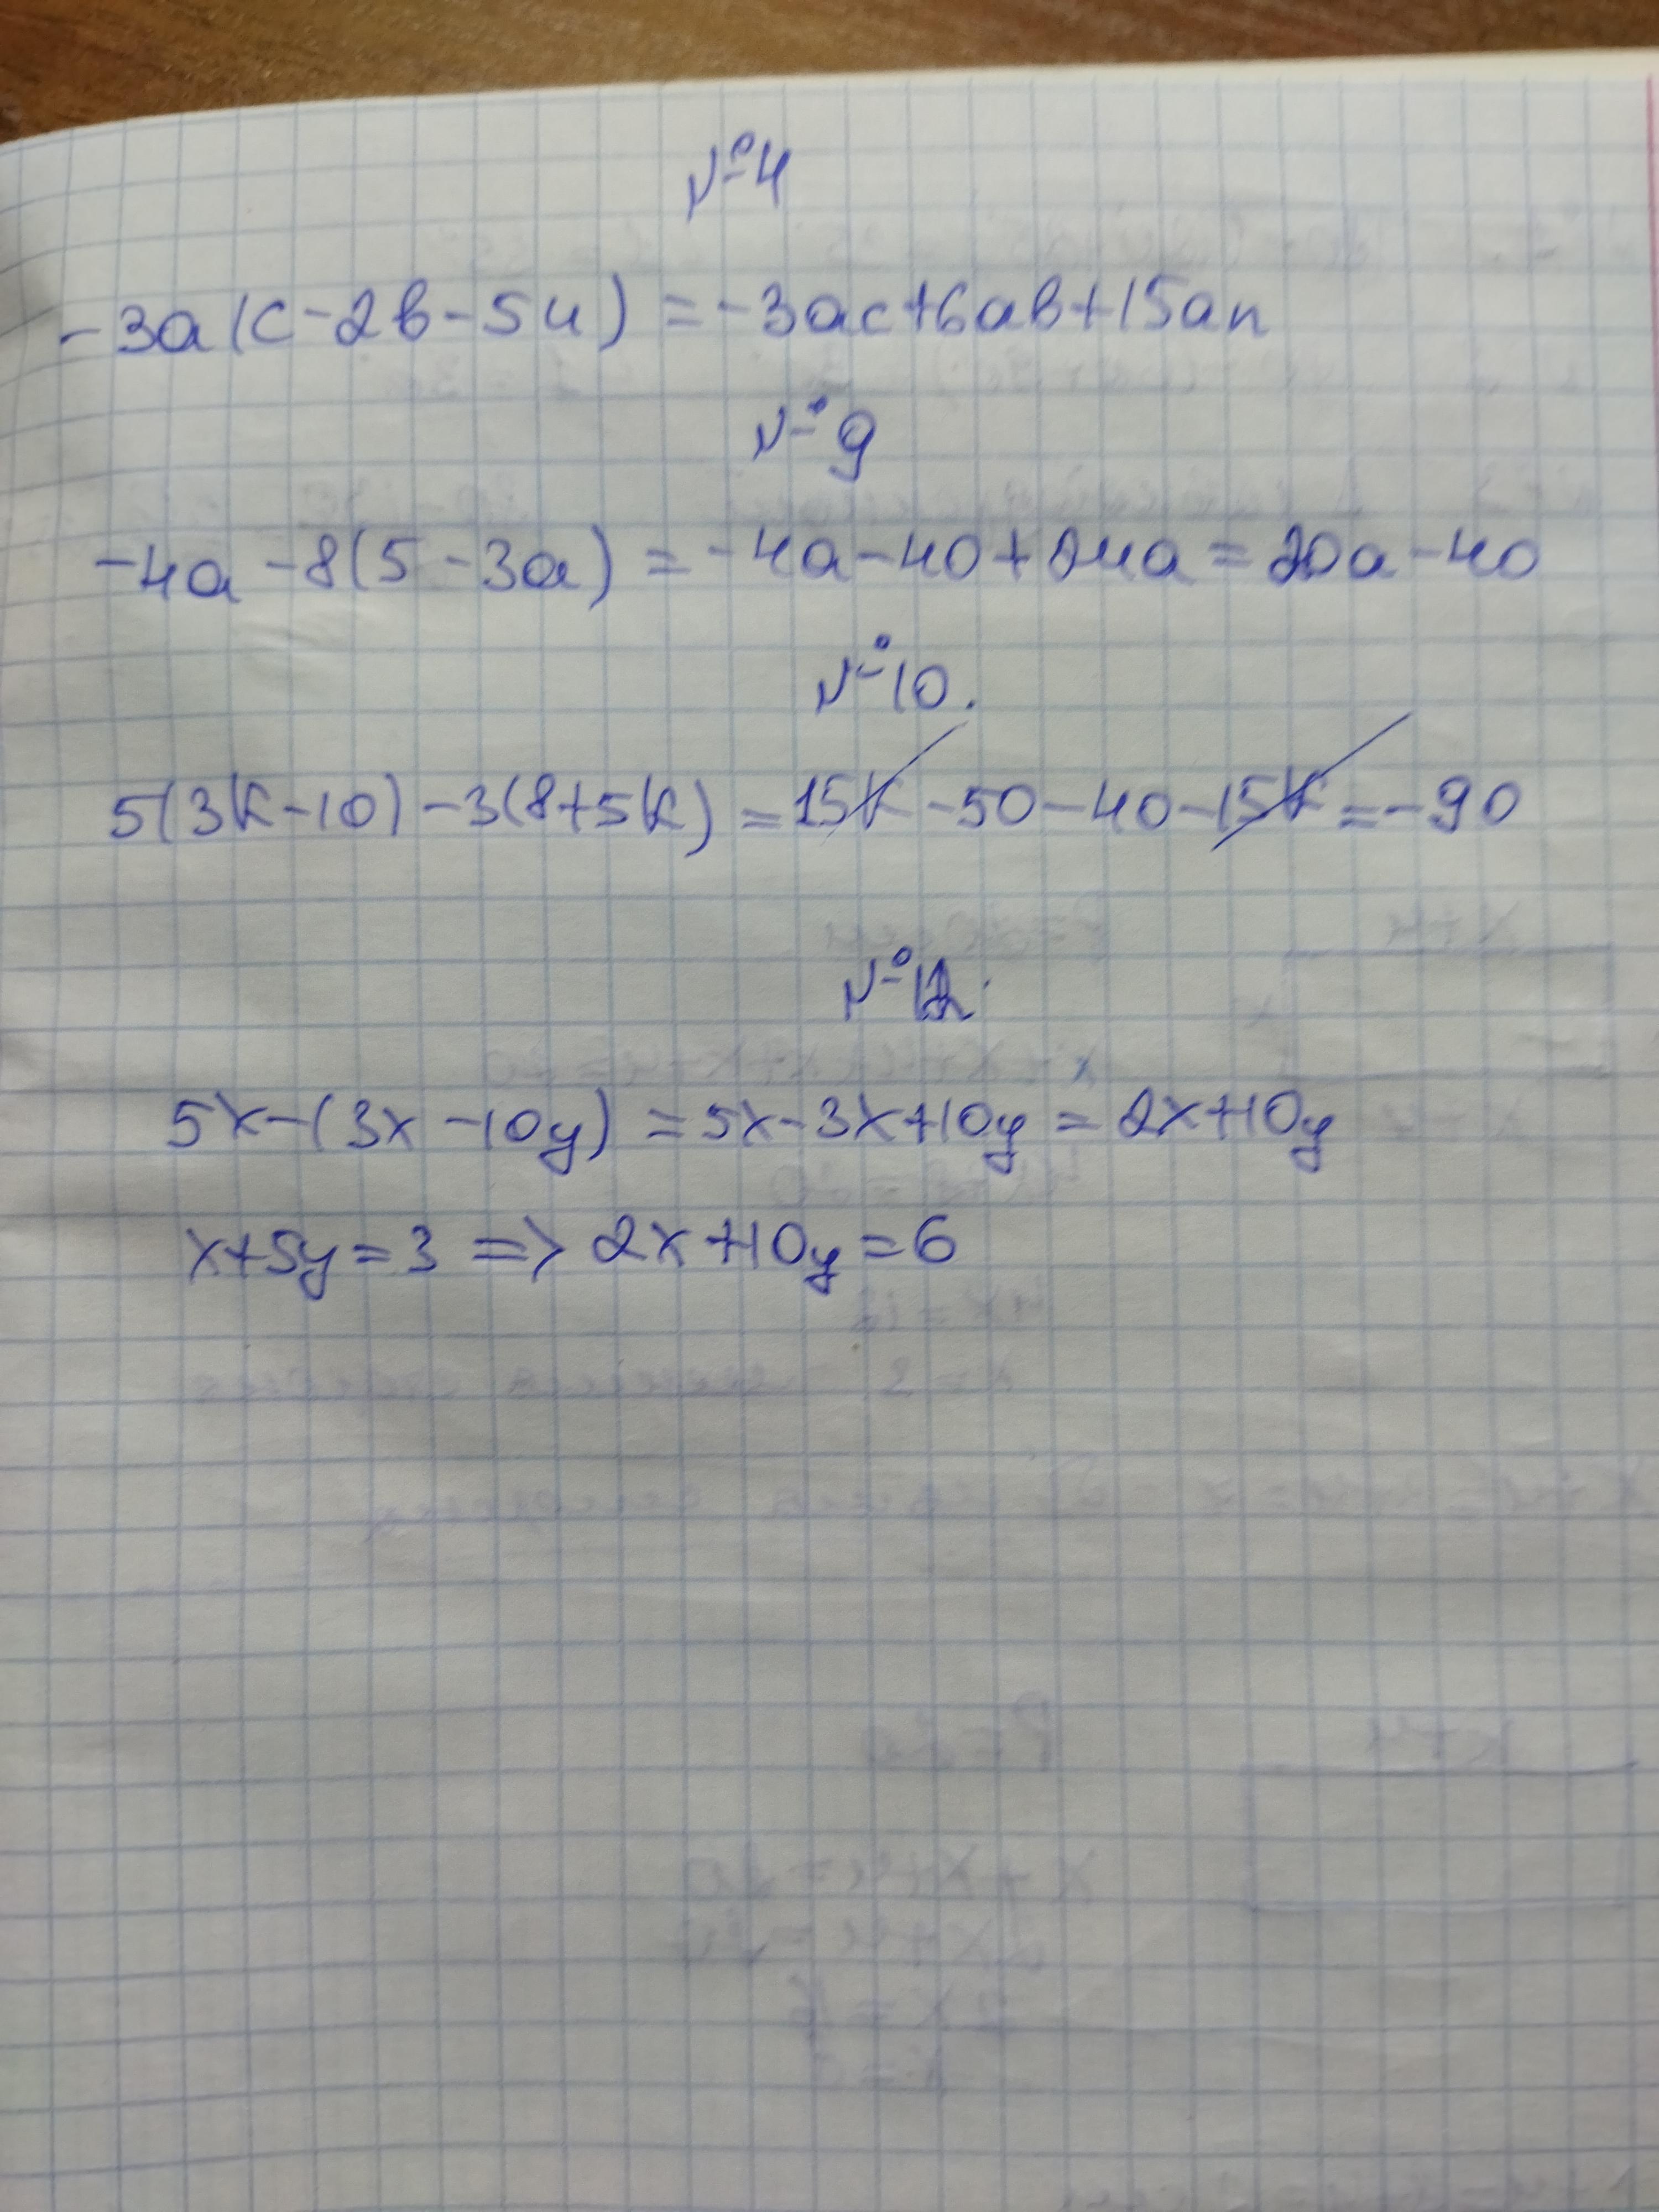 №4
-3a(c-2b-5n)=-3ac+6ab+15an
№9
-4a-8(5-3a)=-4a-40+24a=20a-40
№10.
5(3k-10)-3(8+5k)=15k-50-40-15k=-90
5x-(3x-10y)=5x-3x+10y=2x+10y
x+5y=3 => 2x+10y=6